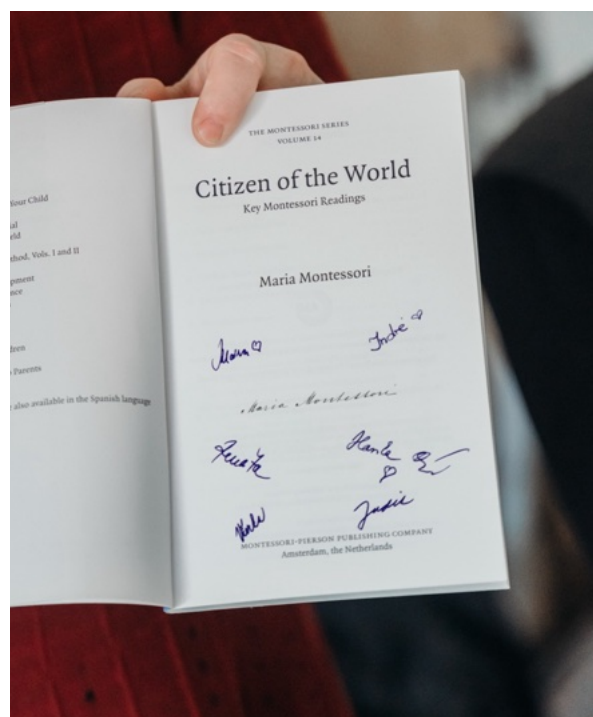 Your Child
al
rld
thod, Vols. I and II
pment
nce
dren
Parents
also available in the Spanish language
THE MONTESSORI SERIES
VOLUME 14
Citizen of the World
Key Montessori Readings
Maria Montessori
Maria Montessori
Renata
Hanka
MONTESSORI-PIERSON PUBLISHING COMPANY
Amsterdam, the Netherlands